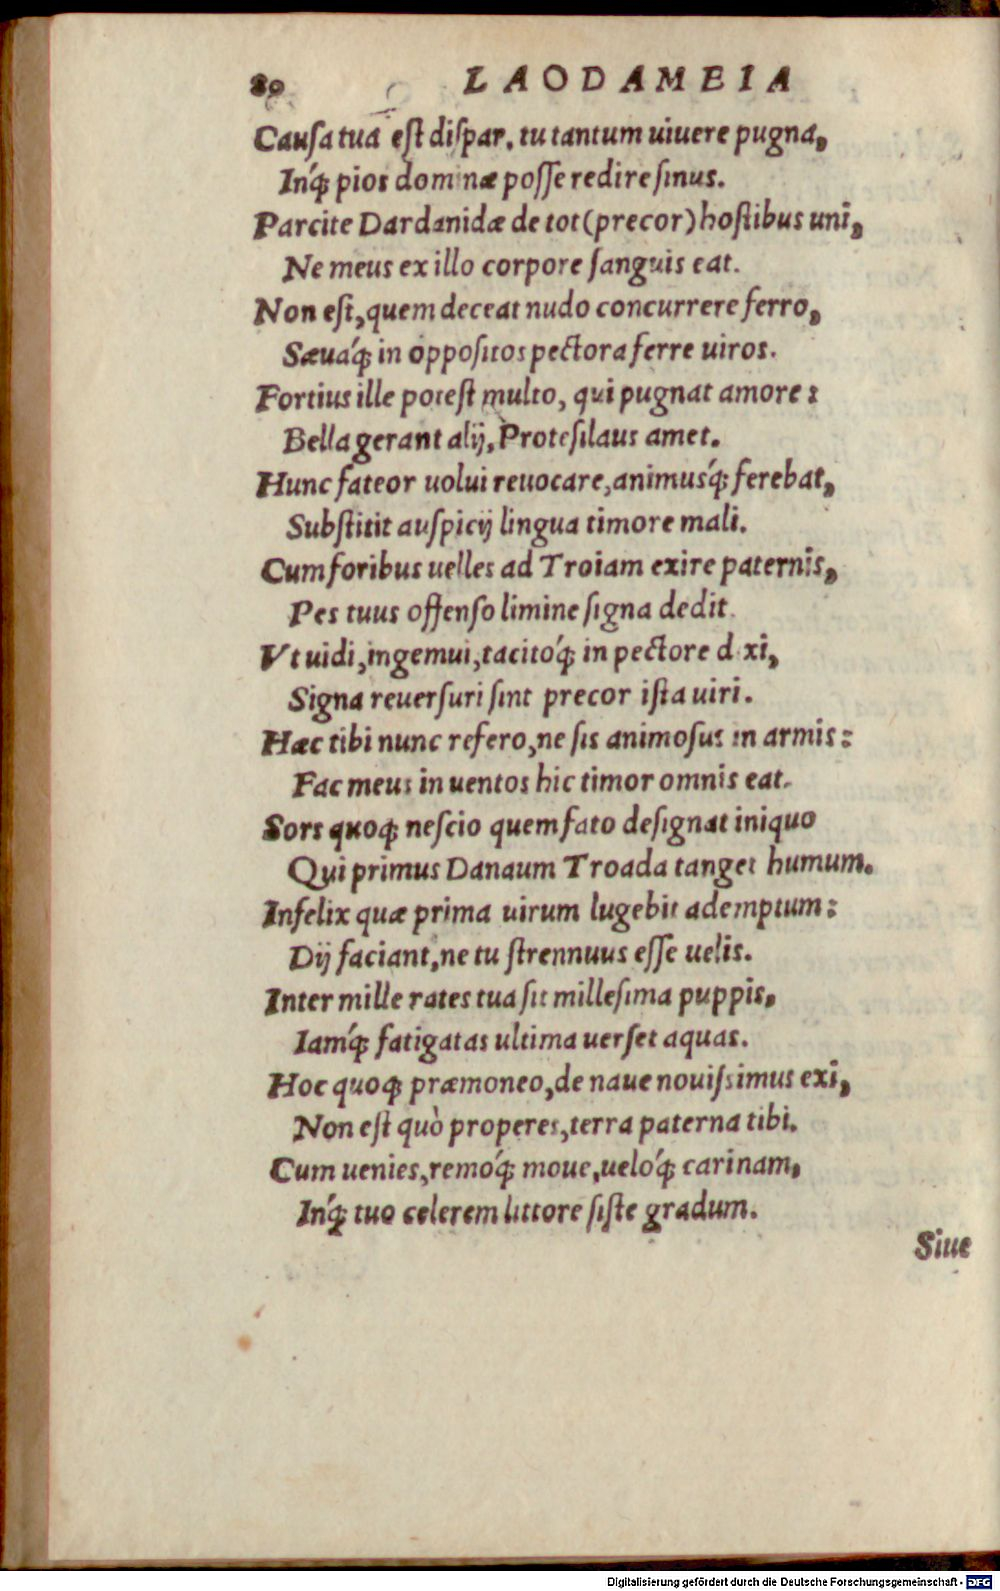 80 LAODAMEIA
Causa tua est dispar, tu tantum uiuere pugna,
Inq́; pios dominæ posse redire sinus.
Parcite Dardanidæ de tot (precor) hostibus uni,
Ne meus ex illo corpore sanguis eat.
Non est, quem deceat nudo concurrere ferro,
Sæuaq́; in oppositos pectora ferre uiros.
Fortius ille potest multo, qui pugnat amore:
Bella gerant alij, Protesilaus amet.
Hunc fateor uolui reuocare, animusq́; ferebat,
Substitit auspicij lingua timore mali.
Cum foribus uelles ad Troiam exire paternis,
Pes tuus offenso limine signa dedit.
Vt uidi, ingemui, tacitoq́; in pectore dixi,
Signa reuersuri sint precor ista uiri.
Hæc tibi nunc refero, ne sis animosus in armis:
Fac meus in uentos hic timor omnis eat.
Sors quoq; nescio quem fato designat iniquo
Qui primus Danaum Troada tanget humum.
Infelix quæ prima uirum lugebit ademptum:
Dij faciant, ne tu strennuus esse uelis.
Inter mille rates tua sit millesima puppis,
Iamq́; fatigatas ultima uerset aquas.
Hoc quoq; præmoneo, de naue nouissimus exi,
Non est quò properes, terra paterna tibi.
Cum uenies, remoq́; moue, ueloq́; carinam,
Inq́; tuo celerem littore siste gradum.
Siue
Digitalisierung gefördert durch die Deutsche Forschungsgemeinschaft - DFG